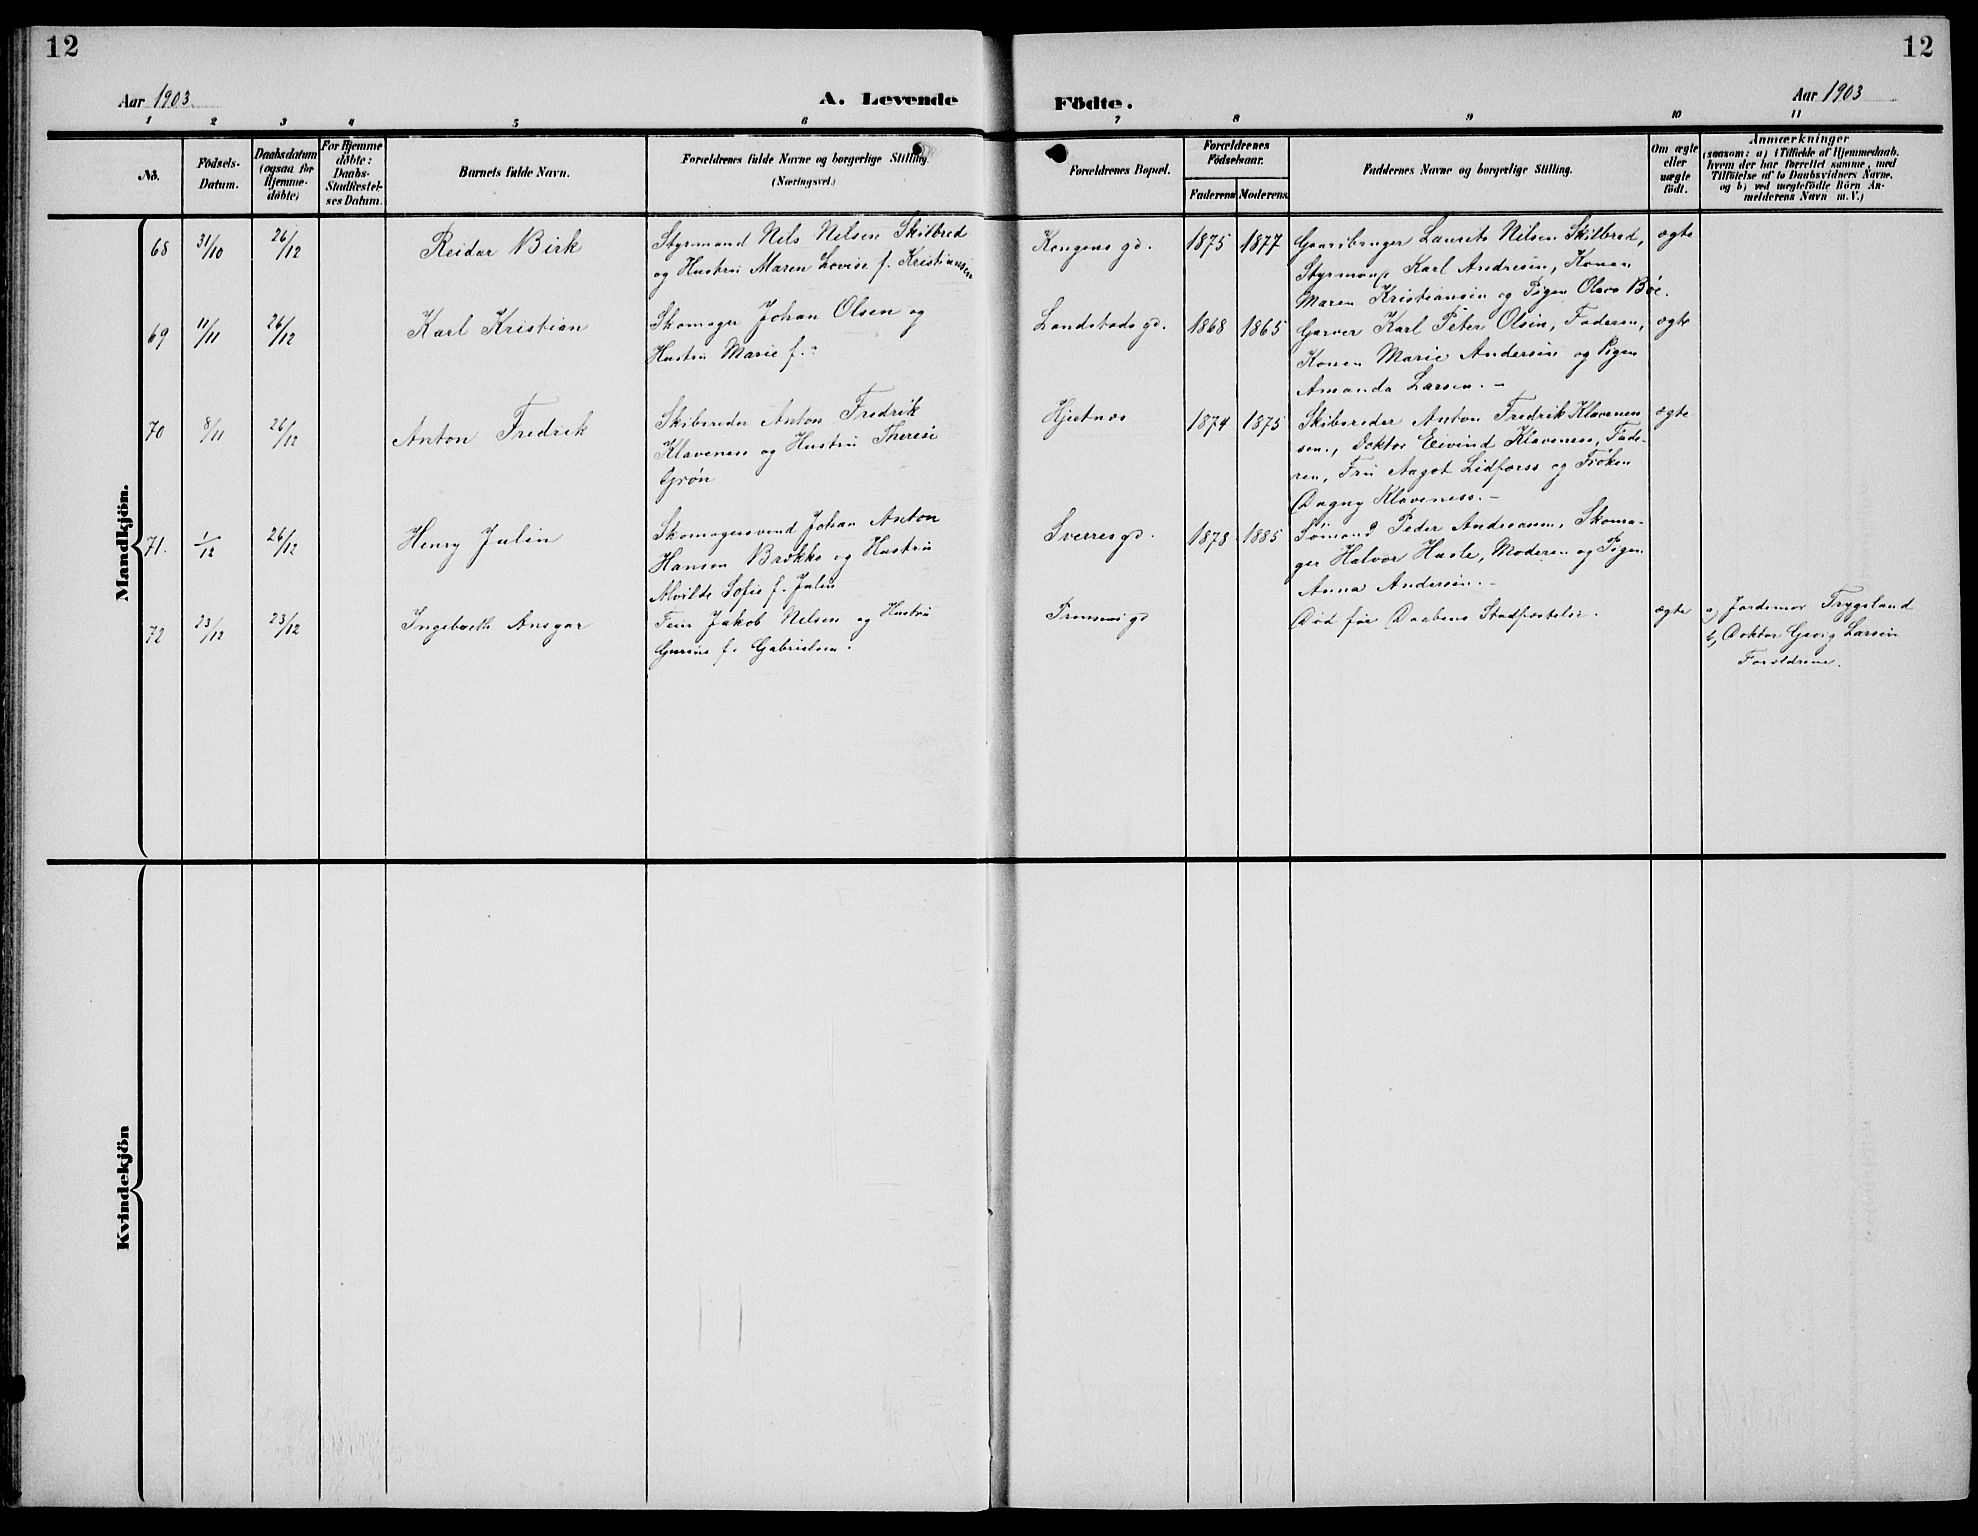 12
12
Aar 1903.
A. Levende
Födte.
Aar 1903
1 2 3 4 5 6 7 8 9 10 11
No.
Födsels-
Datum.
Daabsdatum
(ogsaa for
Hjemme-
döbte)
For Hjemme
döbte:
Daabs-
Stadfæstel-
ses Datum.
Barnets fulde Navn.
Forældrenes fulde Navne og borgerlige Stilling
(Næringsvei.)
Forældrenes Bopæl.
Forældrenes
Födselsaar.
Faderens Moderens
Faddernes Navne og borgerlige Stilling.
Om ægte
eller
uægte
födt.
Anmærkninger
(saasom: a) i Tilfælde af Hjemmedaab,
hvem der har forrettet samme, med
Tilföielse af to Daabsvidners Navne,
og b) ved uægtefödte Börn An-
melderens Navn m.V.)
Mandkjön.
68 31/10 26/12
Reidar Birk
Styrmand Nils Nilsen Skilbred
og Hustru Maren Lovise f. Kristiansen
Kongens gd.
1875 1877
Gaardbruger Laurits Nilsen Skilbred,
Karl Andresen, Konen
Maren Kristiansen og Pigen Olava Bøe.
ægte
69 11/11 26/12
Karl Kristian
Skomager Johan Olsen og
Hustru Marie f.
Landstads gd.
1868 1865
Garver Karl Peter Olsen, Faderen,
Konen Marie Andersen og Pigen
Amanda Larsen. –
ægte
70 8/11 26/12
Anton Fredrik
Skibsreder Anton Fredrik
Klaveness og Hustru Therese
Grøn
Hjertnæs
1874 1875
Skibsreder Anton Fredrik Klavenes
sen., Doktor Eivind Klaveness, Fade-
ren, Fru Aagot Lidforss og Frøken
Dagny Klaveness. –
ægte
71. 1/12 26/12
Henry Julin
Skomagersvend Johan Anton
Hansen Brække og Hustru
Alvilde Sofie f. Julin
Sverresgd.
1878 1885
Sømand Peder Andreasen, Skoma-
ger Halvor Hasle, Moderen og Pigen
Anna Andersen. –
72 23/12 23/12
Ingebreth Ansgar
Feier Jakob Nilsen og Hustru
Gurine f. Gabrielsen.
Død før Daabens Stadfæstelse.
ægte
a) Jordemor Trygsland
b) Doktor Georg Larsen
Forældrene.
Kvindekjön